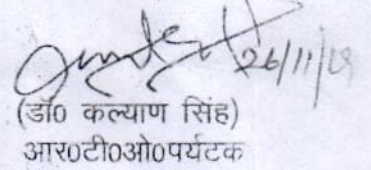 26/11/19
(डॉ0 कल्याण सिंह)
आर0टी0ओ0पर्यटक